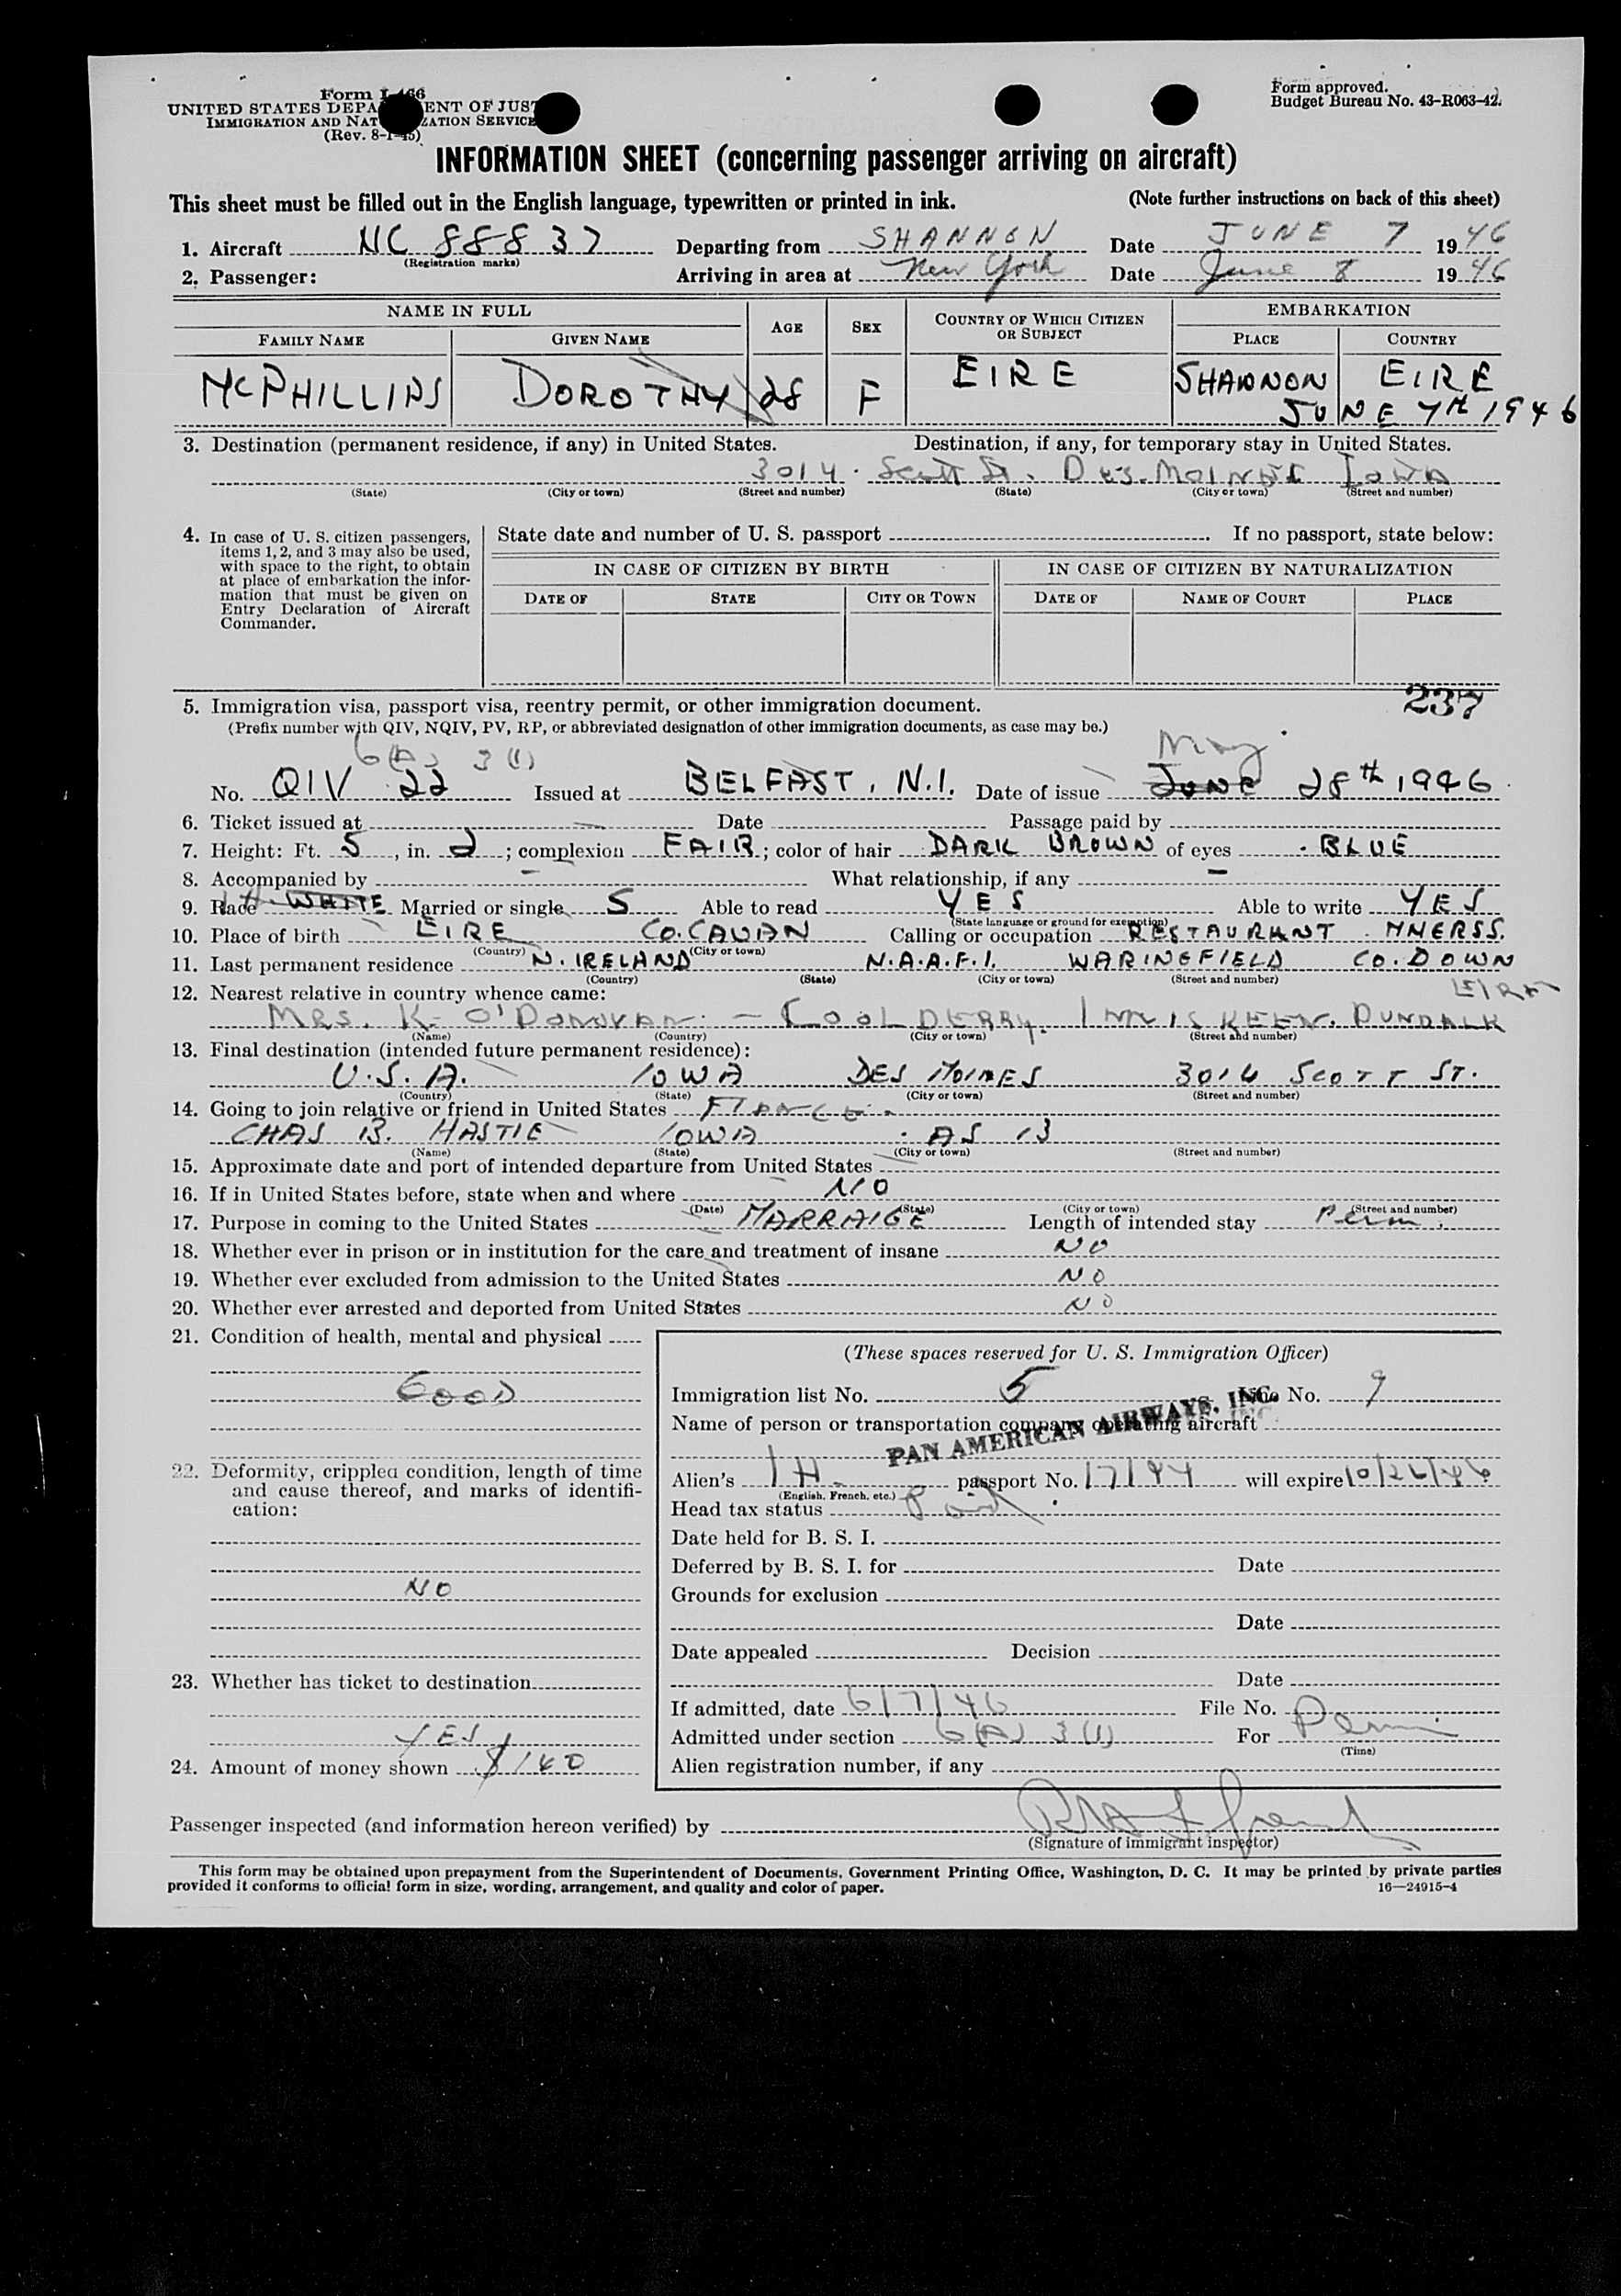 Form I-466
UNITED STATES DEPARTMENT OF JUSTICE
IMMIGRATION AND NATURALIZATION SERVICE
(Rev. 8-1-45)
Form approved.
Budget Bureau No. 43-R063-42.
INFORMATION SHEET (concerning passenger arriving on aircraft)
This sheet must be filled out in the English language, typewritten or printed in ink. (Note further instructions on back of this sheet)
1. Aircraft NC 88837 Departing from SHANNON Date JUNE 7 1946
(Registration marks)
2. Passenger: Arriving in area at New York Date June 8 1946
NAME IN FULL AGE SEX COUNTRY OF WHICH CITIZEN OR SUBJECT EMBARKATION
FAMILY NAME GIVEN NAME PLACE COUNTRY
MCPHILLIPS DOROTHY 28 F EIRE SHANNON EIRE
JUNE 7TH 1946
3. Destination (permanent residence, if any) in United States. Destination, if any, for temporary stay in United States.
3014 Scott St. DES. MOINES IOWA
(State) (City or town) (Street and number) (State) (City or town) (Street and number)
4. In case of U. S. citizen passengers, items 1, 2, and 3 may also be used, with space to the right, to obtain at place of embarkation the information that must be given on Entry Declaration of Aircraft Commander.
State date and number of U. S. passport . If no passport, state below:
IN CASE OF CITIZEN BY BIRTH IN CASE OF CITIZEN BY NATURALIZATION
DATE OF STATE CITY OR TOWN DATE OF NAME OF COURT PLACE
237
5. Immigration visa, passport visa, reentry permit, or other immigration document.
(Prefix number with QIV, NQIV, PV, RP, or abbreviated designation of other immigration documents, as case may be.)
6(A) 3(1) May
No. QIV 22 Issued at BELFAST, N.I. Date of issue JUNE 28th 1946
6. Ticket issued at Date Passage paid by
7. Height: Ft. 5, in. 2; complexion FAIR; color of hair DARK BROWN of eyes BLUE
8. Accompanied by - What relationship, if any -
9. Race WHITE Married or single S Able to read YES Able to write YES
(State language or ground for exemption)
10. Place of birth EIRE CO. CAVAN Calling or occupation RESTAURANT MNERSS.
(Country) (City or town)
11. Last permanent residence N. IRELAND N.A.A.F.I. WARINGFIELD CO. DOWN
(Country) (State) (City or town) (Street and number)
12. Nearest relative in country whence came: EIRE
MRS. K. O'DONOVAN - COOLDERRY. INNISKEEN. DUNDALK
(Name) (Country) (City or town) (Street and number)
13. Final destination (intended future permanent residence):
U.S.A. IOWA DES MOINES 3014 SCOTT ST.
(Country) (State) (City or town) (Street and number)
14. Going to join relative or friend in United States FIANCE.
CHAS B. HASTIE IOWA AS 13
(Name) (State) (City or town) (Street and number)
15. Approximate date and port of intended departure from United States
16. If in United States before, state when and where NO
(Date) (State) (City or town) (Street and number)
17. Purpose in coming to the United States MARRAIGE Length of intended stay Perm.
18. Whether ever in prison or in institution for the care and treatment of insane NO
19. Whether ever excluded from admission to the United States NO
20. Whether ever arrested and deported from United States NO
21. Condition of health, mental and physical
GOOD
22. Deformity, crippled condition, length of time and cause thereof, and marks of identification:
NO
23. Whether has ticket to destination
YES
24. Amount of money shown $160
(These spaces reserved for U. S. Immigration Officer)
Immigration list No. 5 Line No. 9
Name of person or transportation company operating aircraft
PAN AMERICAN AIRWAYS, INC.
Alien's IH. passport No. 17144 will expire 10/26/46
(English, French, etc.)
Head tax status Paid
Date held for B. S. I.
Deferred by B. S. I. for Date
Grounds for exclusion
Date
Date appealed Decision
Date
If admitted, date 6/7/46 File No.
Admitted under section 6(A) 3(1) For Perm
(Time)
Alien registration number, if any
Passenger inspected (and information hereon verified) by
(Signature of immigrant inspector)
This form may be obtained upon prepayment from the Superintendent of Documents, Government Printing Office, Washington, D. C. It may be printed by private parties
provided it conforms to official form in size, wording, arrangement, and quality and color of paper. 16—24915-4